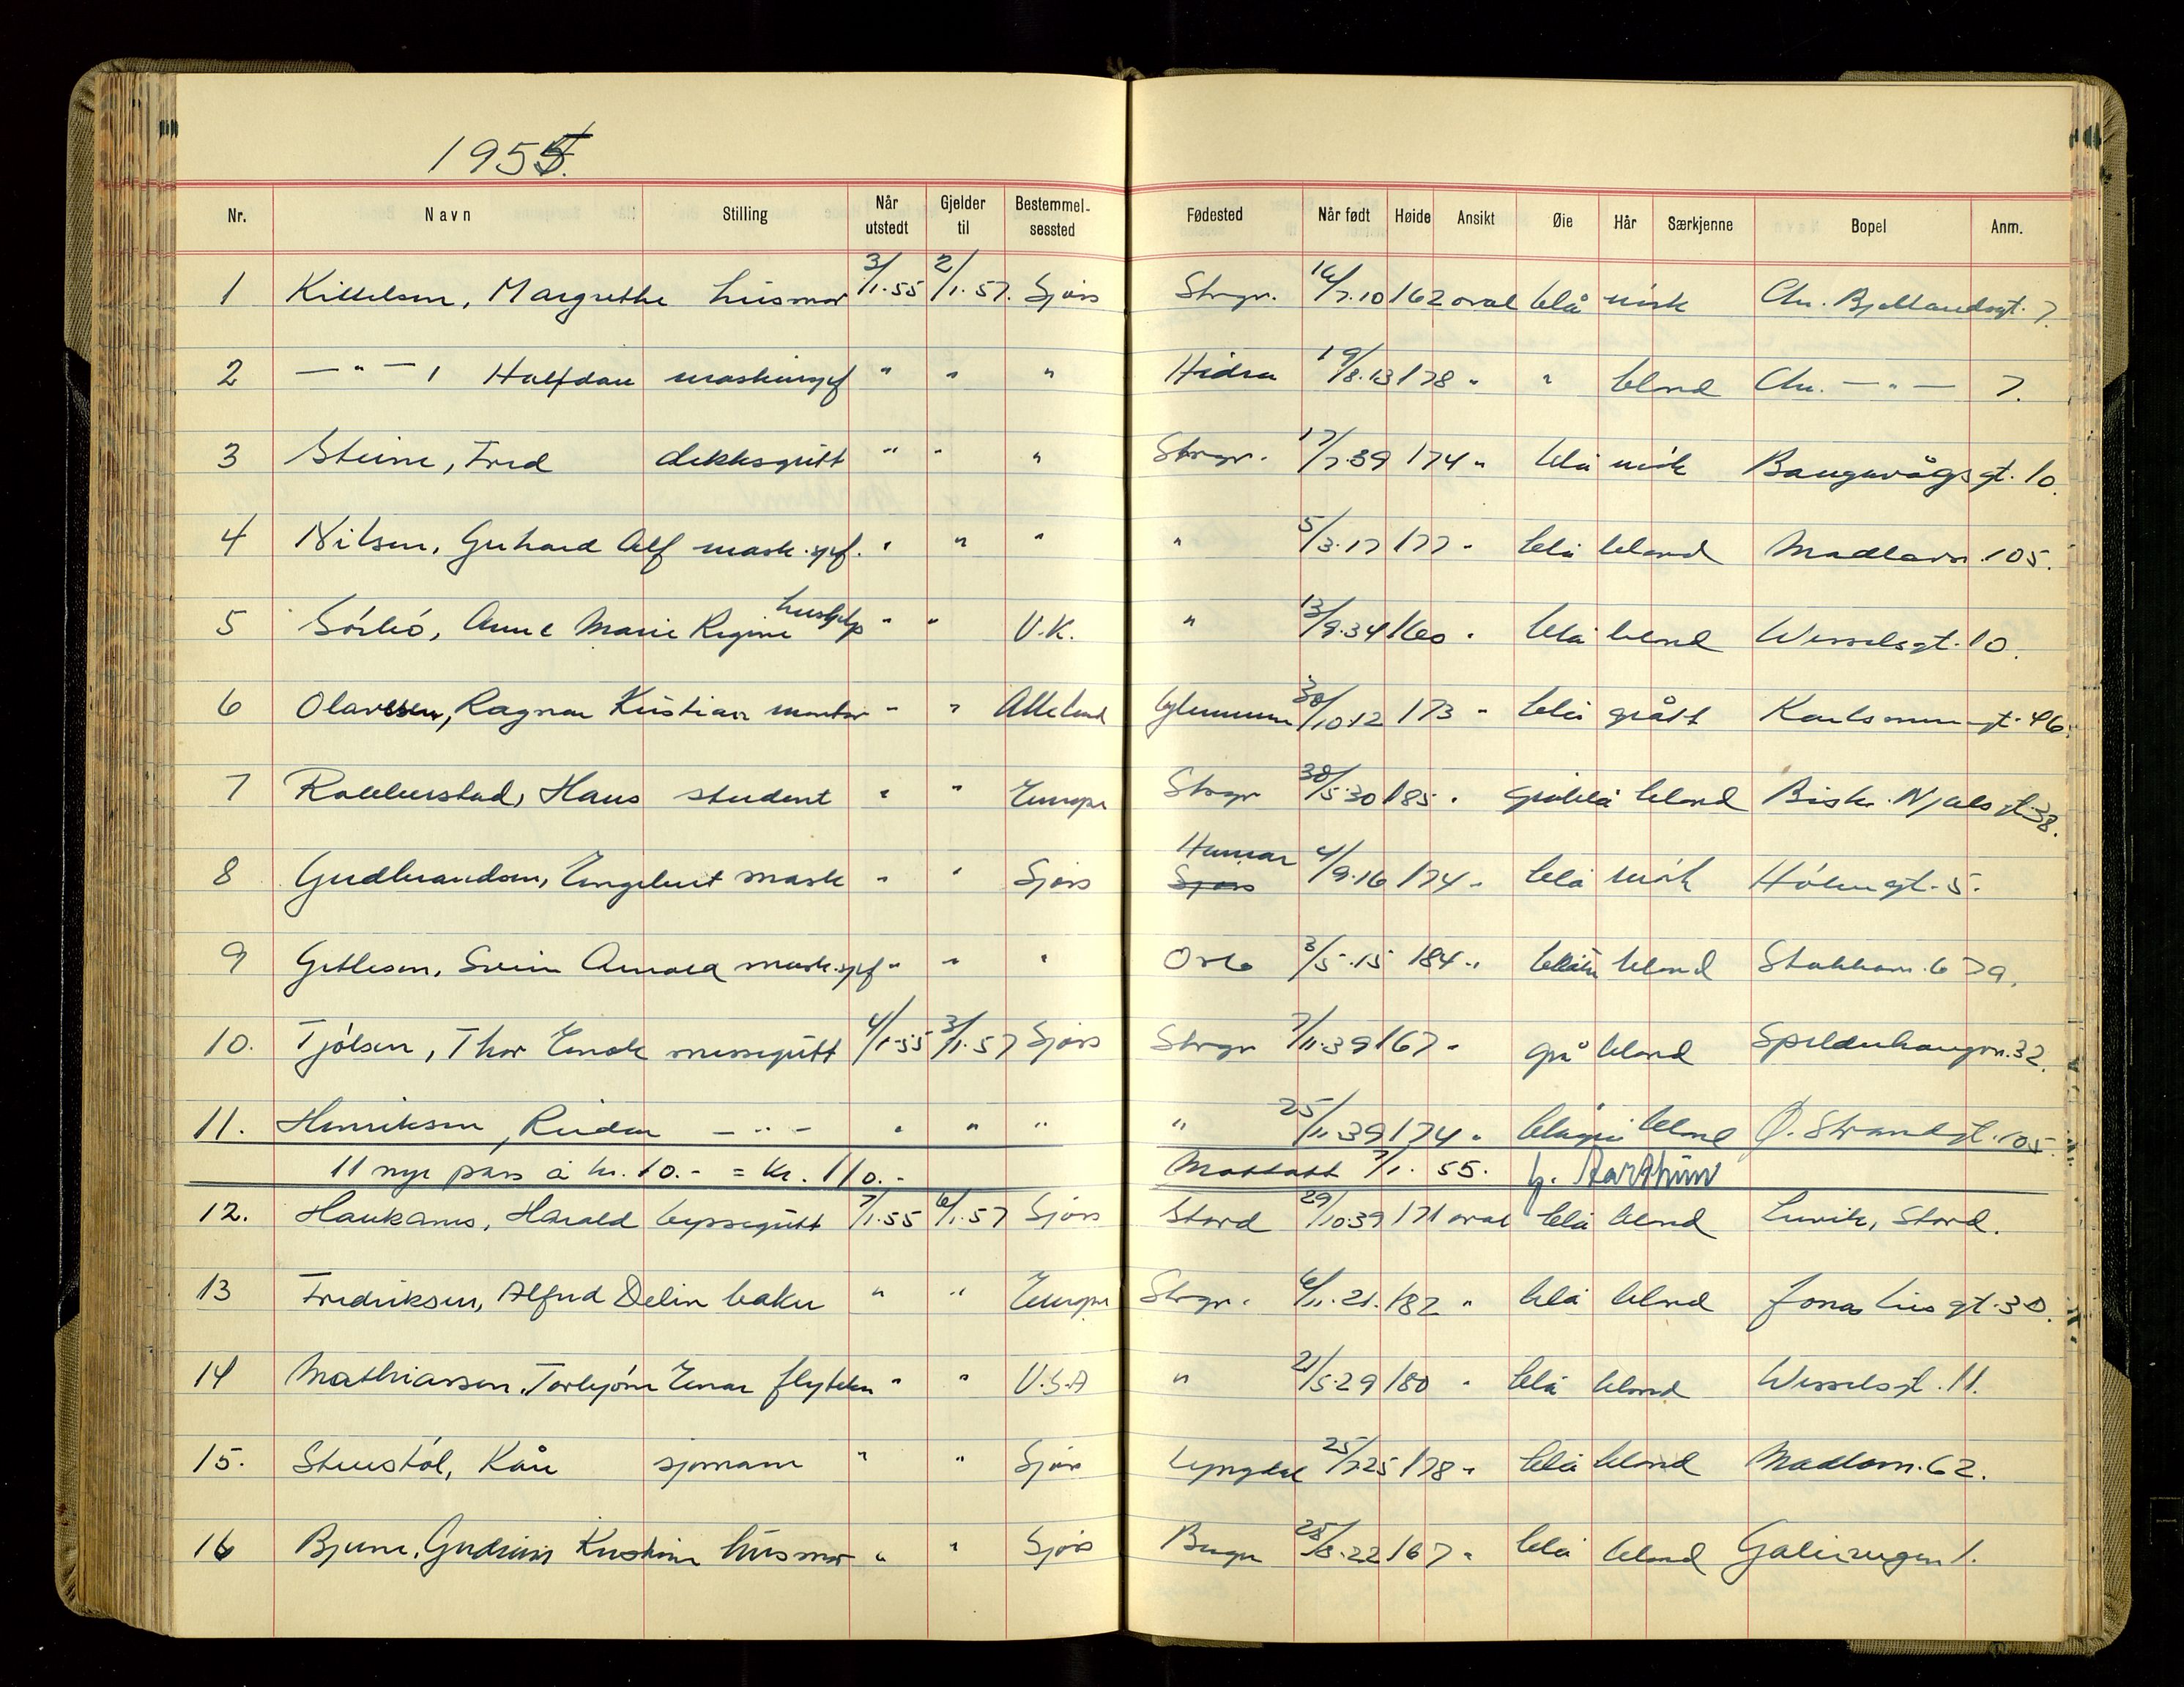 1955.
Nr. Navn Stilling Når utstedt Gjelder til Bestemmelsessted Fødested Når født Høide Ansikt Øie Hår Særkjenne Bopel Anm.
1 Kittelsen, Margrethe husmor 3/1.55 2/1.57. Sjøss Stvgr. 16/7.10 162 oval blå mørk Chr. Bjellandsgt. 7.
2 — " — , Halfdan maskinsjef " " " Hidra 19/8.13 178 " " blond Chr. — " — 7.
3 Steine, Fred dekksgutt " " " Stvgr. 17/7.39 174 " blå mørk Baugnvågsgt. 10.
4 Nilsen, Gerhard Alf mask.sjef. " " " " 5/3.17 177 " blå blond Madlavn. 105.
5 Sørbö, Anne Marie Regine hushjelp " " U.K. " 13/9.34 160 " blå blond Wesselsgt. 10.
6 Olavssen, Ragnar Kristian montør " " Alle land Glemmen 30/10.12 173 " blå grått Karlsminnegt. 46.
7 Rabberstad, Hans student " " Europa Stvgr 30/5.30 185 " gråblå blond Bisk. Njaalsgt. 38.
8 Gudbrandsen, Engebret mask " " Sjøss Hamar Sjøss 4/9.16 174 " blå mörk Hólengt. 5.
9 Gitlesen, Svein Arnold mask.sjef " " " Oslo 3/5.15 184 " blå blond Stokkavn. 67a.
10. Tjólsen, Thor Enok messegutt 4/1.55 3/1.57 Sjøss Stvgr 7/11.39 167 " grå blond Spilderhaugvn. 32.
11. Henriksen, Reidar — " — " " " " 25/11.39 174 " blågrå blond Ø. Strandgt. 105.
11 nye pass à kr. 10.- = Kr. 110.- Mottatt 7/1. 55.
12. Haukanes, Harald byssegutt 7/1.55 6/1.57 Sjøss Stord 29/10.39 171 oval blå blond Lervik, Stord.
13 Fredriksen, Alfred Delin baker " " Europa Stvgr. 6/11.21. 182 " blå blond Jonas Lies gt. 30.
14 Mathiassen, Torbjórn Einar flytekn " " U.S.A " 21/5.29 180 " blå blond Wesselsgt. 11.
15. Stustól, Kåre sjömann " " Sjøss Lyngdal 25/7.25 178 " blå blond Madlavn. 62.
16 Bjune, Gudrun Kristine husmor " " Sjøss Bergen 167 " blå blond 1.